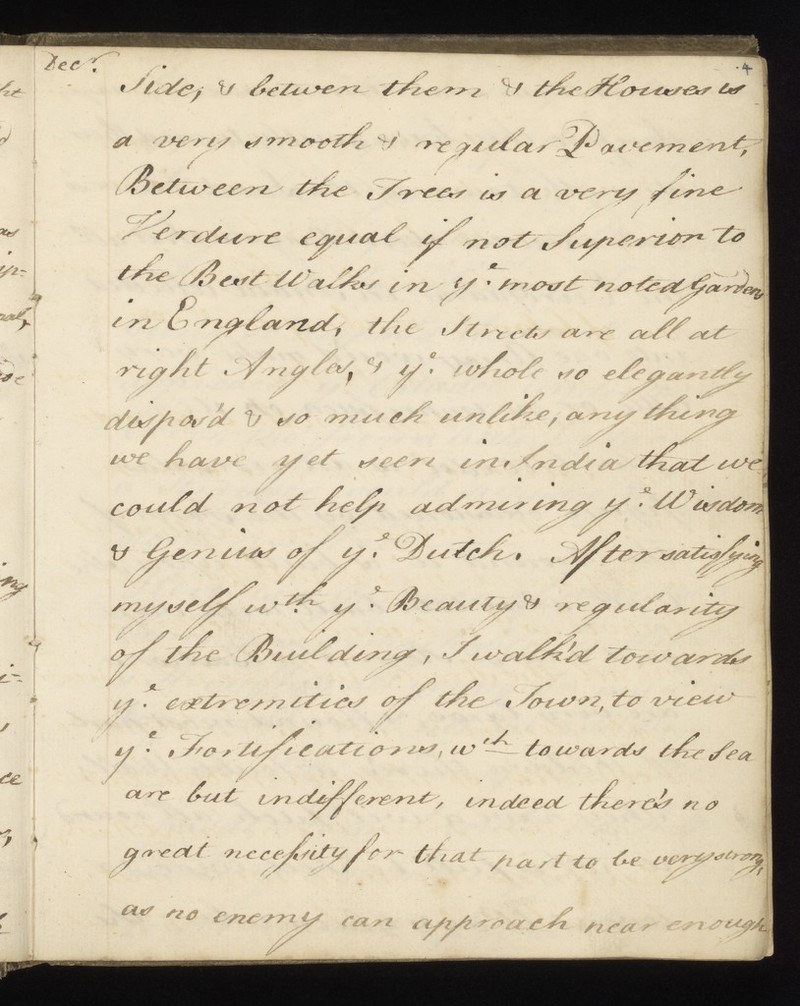 Decr.
4
Side, & betwen them & the Houses is
a very smooth & regular Pavement,
Between the Trees is a very fine
Verdure equal if not Superior to
the Best Walks in ye. most noted Gardens
in England, the Streets are all at
right Angles, & ye. whole so elegantly
dispos'd & so much unlike, any thing
we have yet seen in India that we
could not help admiring ye. Wisdom
& Genius of ye. Dutch. After satisfying
myself wth. ye. Beauty & regularity
of the Building, I walk'd towards
ye. extremities of the Town, to view
ye. Fortifications, wch towards the Sea
are but indifferent, indeed there's no
great necessity for that part to be very strong,
as no enemy can approach near enough